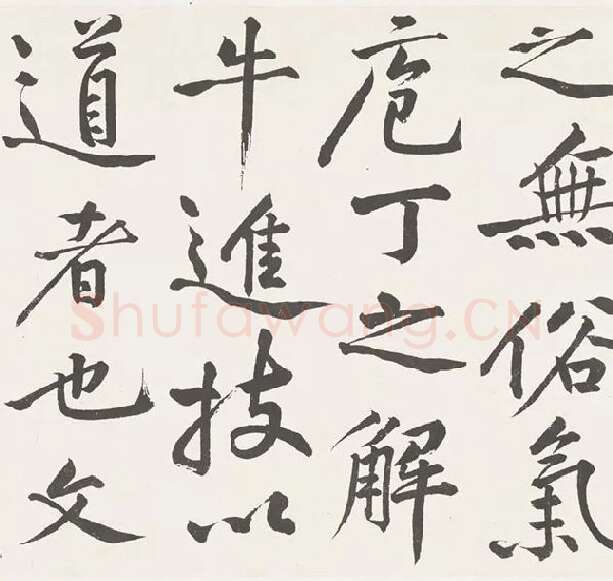 之無俗氣
庖丁之解
牛進技以
道者也文
Shufawang.CN